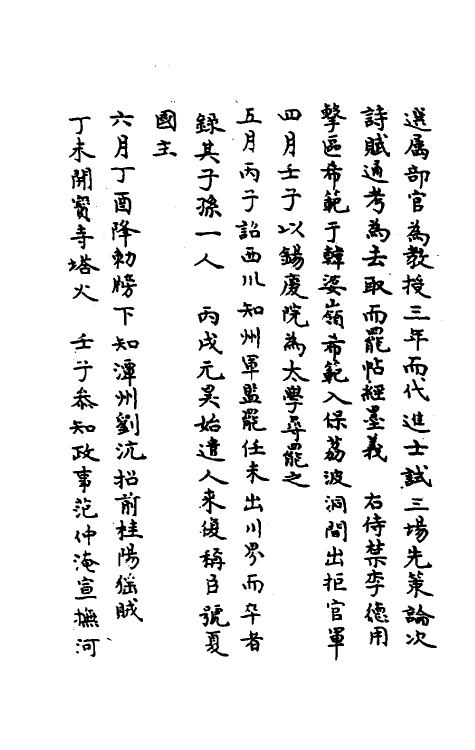 選属部官為教授三年而代進士試三場先策論次
詩賦通考為去取而罷帖經墨義　右侍禁李德用
擊區希範于韓婆嶺希範入保荔波洞間出拒官軍
四月壬子以錫慶院為太學尋罷之
五月丙子詔西川知州軍監罷任未出川界而卒者
錄其子孫一人　丙戌元昊始遣人來復稱臣號夏
國主
六月丁酉降勅牓下知潭州劉沆招前桂陽徭賊
丁未開寳寺塔火　壬子叅知政事范仲淹宣撫河